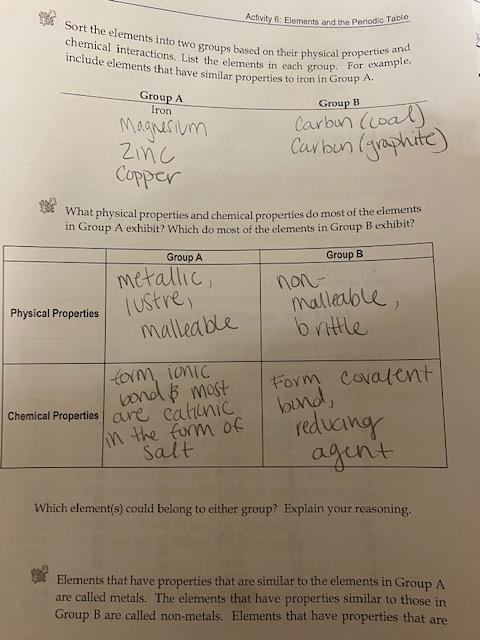 Activity 6: Elements and the Periodic Table
Sort the elements into two groups based on their physical properties and
chemical interactions. List the elements in each group. For example,
include elements that have similar properties to iron in Group A.
Group A
Group B
Iron
Magnesium
Zinc
Copper
Carbon (coal)
Carbon (graphite)
What physical properties and chemical properties do most of the elements
in Group A exhibit? Which do most of the elements in Group B exhibit?
Group A
Group B
Physical Properties
metallic,
lustre,
malleable
non-
malleable,
brittle
Chemical Properties
form ionic
bond & most
are cationic
in the form of
salt
Form covalent
bond,
reducing
agent
Which element(s) could belong to either group? Explain your reasoning.
Elements that have properties that are similar to the elements in Group A
are called metals. The elements that have properties similar to those in
Group B are called non-metals. Elements that have properties that are